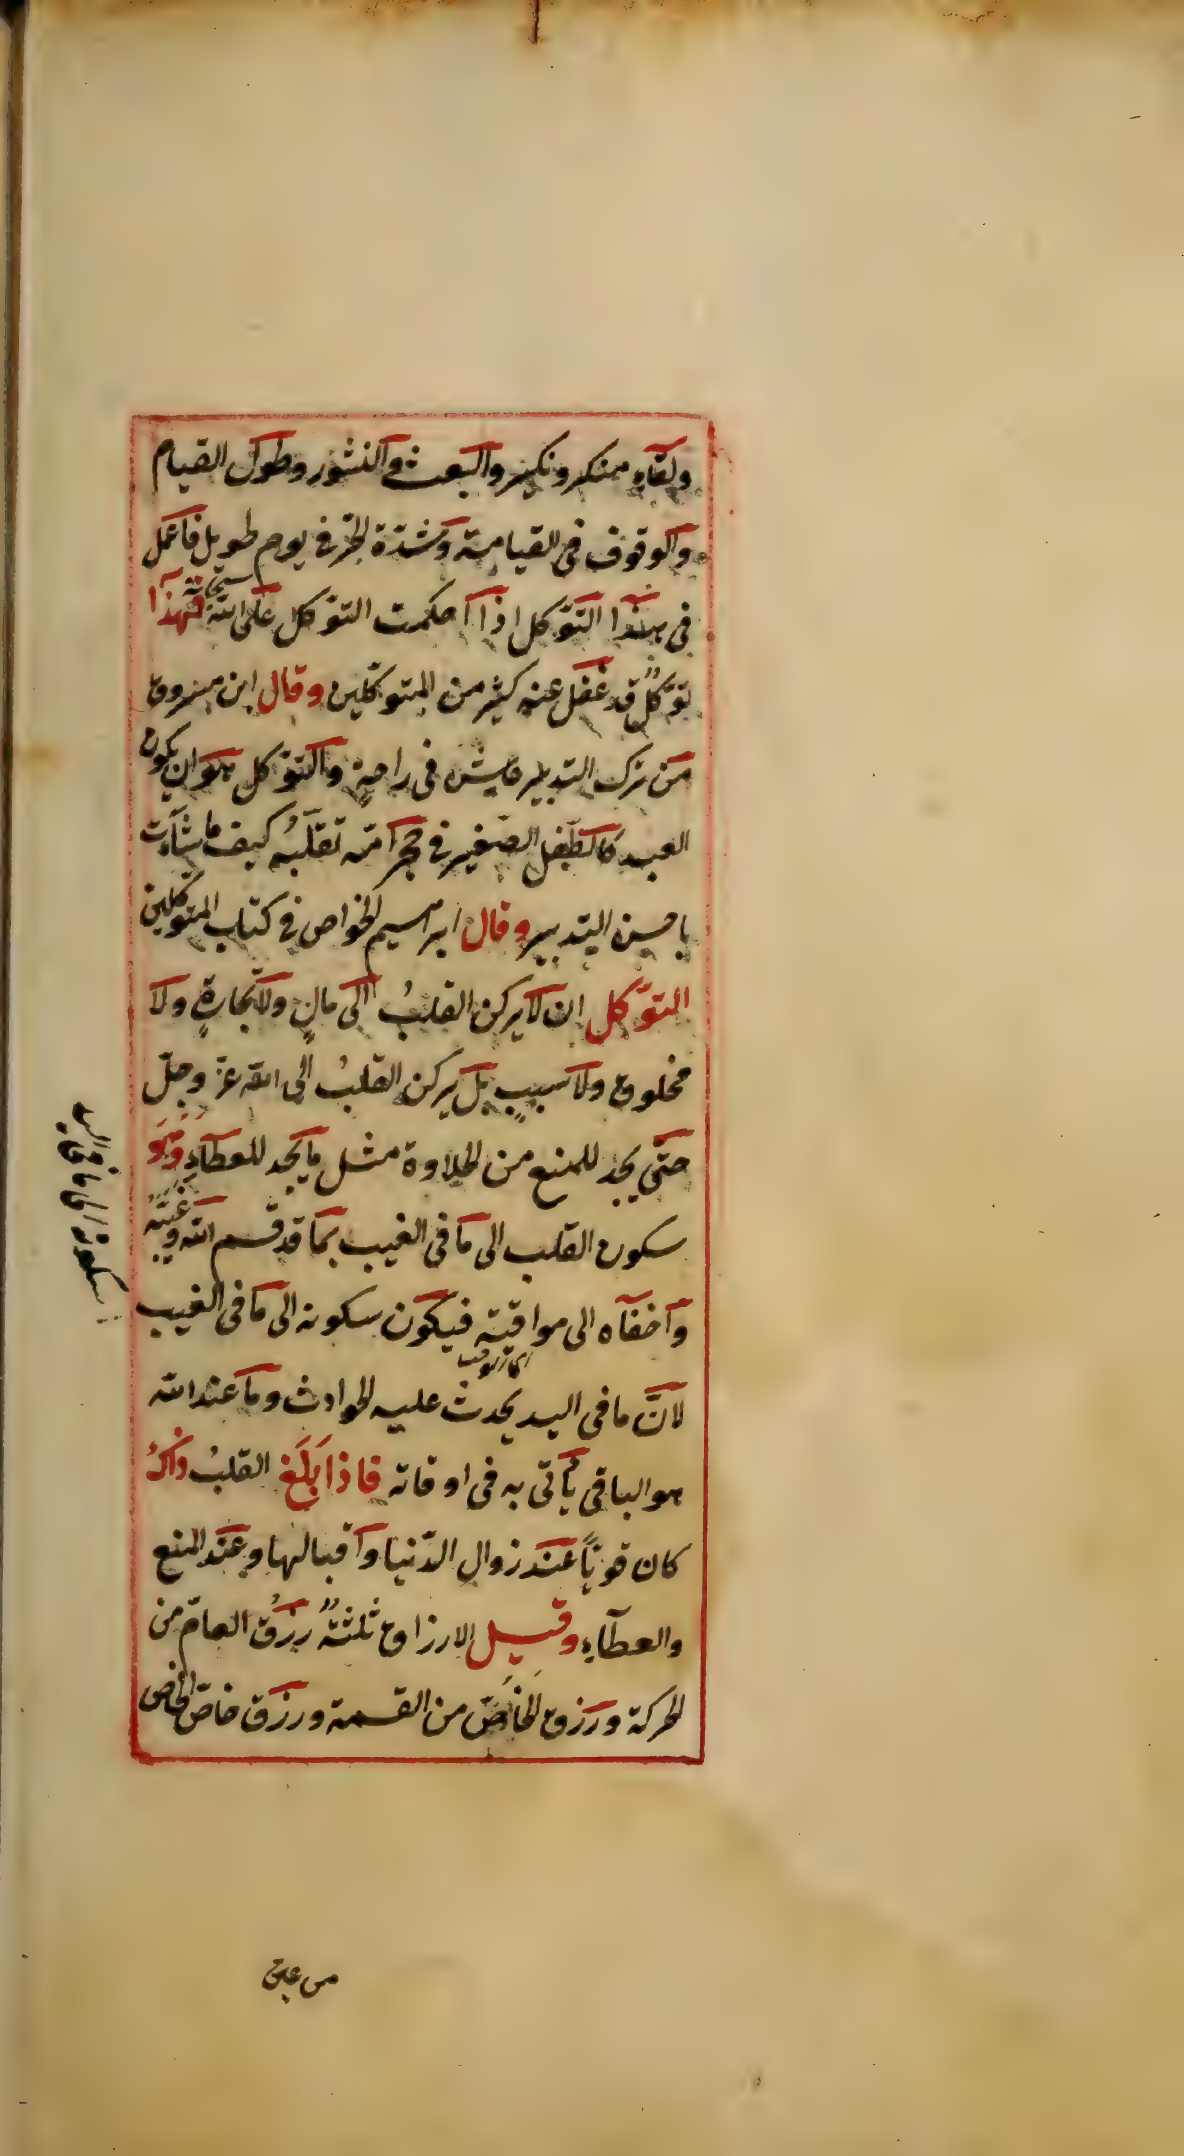 ولقآءِ منكر ونكير والبعث والنشور وطول القيام
والوقوف فى القيامة وشدّة الحرّ فى يوم طويل فاعمل
فى هذا التوّكل اذا احكمت التوّكل على الله سبحانه فهذا
توّكلٌ قد غفل عنه كثير من المتوكّلين وقال ابن مسروق
من ترك التدبير عاش فى راحةٍ والتوّكل هو ان يكون
العبد كالطّفل الصّغير فى حجر امّه تقلّبُه كيف ما شآءت
باحسن التدبير وقال ابراهيم الخواص فى كتاب المتوكلين
التوّكل ان لا يركن القلبُ الى مالٍ ولا تجارةٍ ولا
مخلوق ولا سببٍ بل يركن القلبُ الى الله عزّ وجلّ
حتّى يجد للمنع من الحلاوة مثل ما يجد للعطآءِ وهُوَ
سكون القلب الى ما فى الغيب بما قد قسم الله وغيّبَهُ
وآخفآه الى مواقيته فيكون سكونه الى ما فى الغيب
لانّ ما فى اليد يحدث عليه الحوادث وما عند الله
هو الباقى يأتى به فى اوقاته فاذا بَلَغَ القلبُ ذلكَ
كان قويّاً عند زوال الدّنيا وآقبالها وعند المنع
والعطآءِ وقيل الارزاق ثلثةٌ رزقُ العامّ من
الحركة ورزق الخَاصّ من القسمة ورزق خاصّ الخاص
من عين